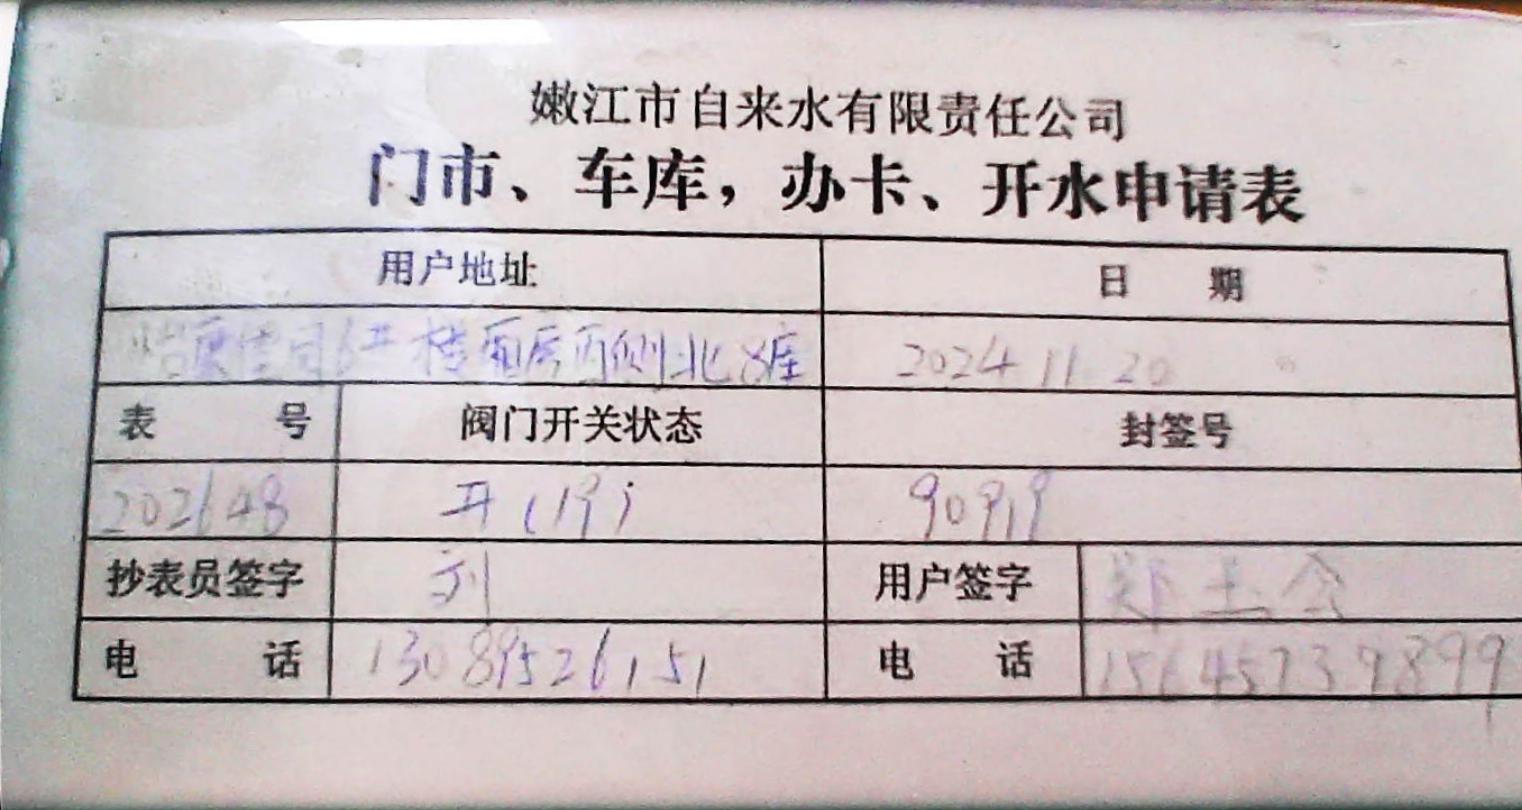 嫩江市自来水有限责任公司
门市、车库，办卡、开水申请表
用户地址 日 期
6# 楼 西侧北8库 2024.11.20
表 号 阀门开关状态 封签号
202648 开 90919
抄表员签字 刘 用户签字 郑玉
电 话 13089526151 电 话